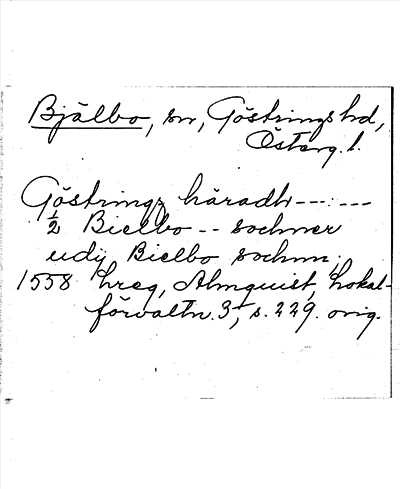 Bjälbo, sn, Göstrings hd,
Österg. l.
Göstringz häradh --- : ---
½ Bielbo -- sochner
udij Bielbo sochnn;
1558 hreg, Almquist, Lokal-
förvaltn. 3, s. 229. orig.